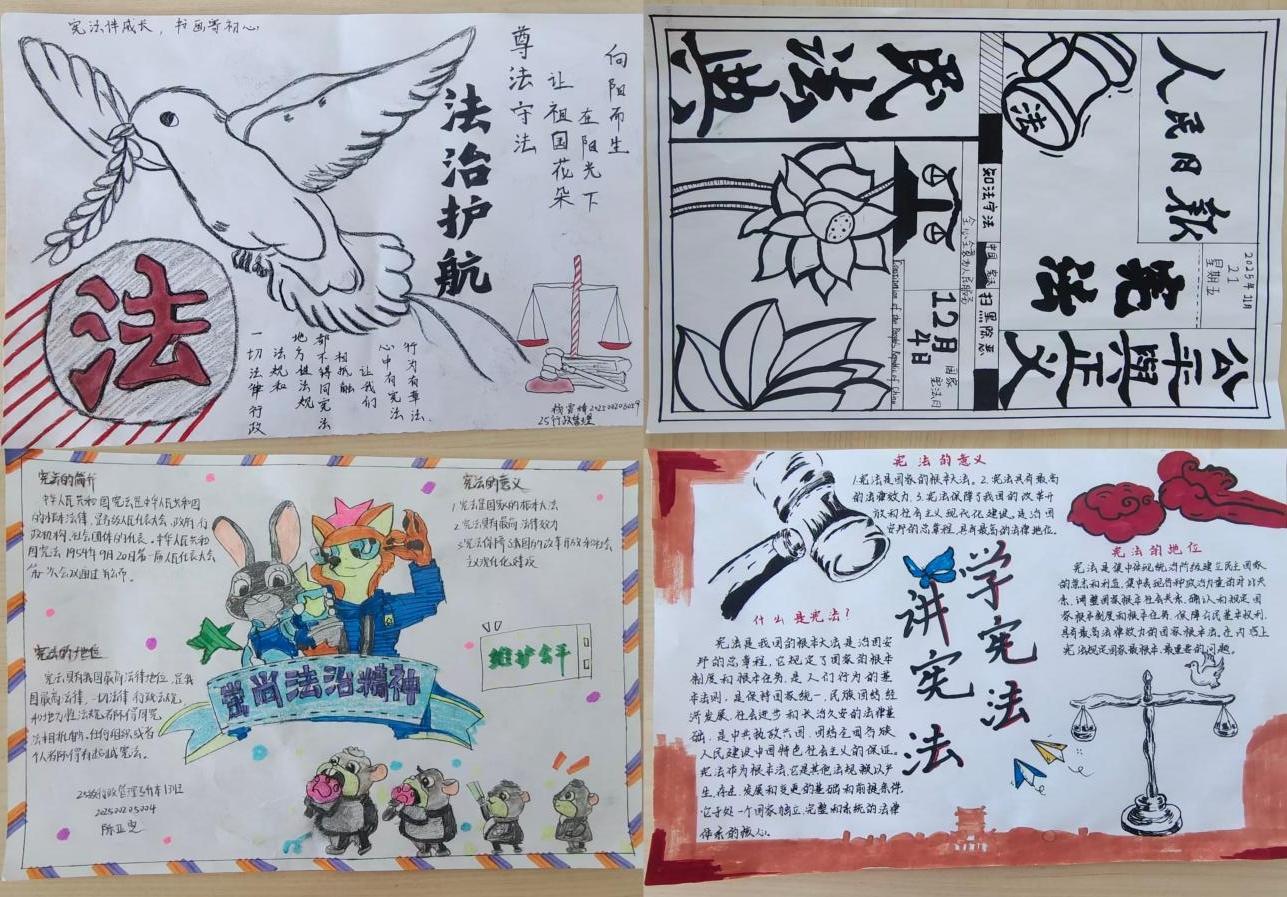 宪法伴成长，书画寄初心
法治护航
尊法守法
让祖国花朵
在阳光下
向阳而生
法
行为有尊法
心中有宪法
让我们
相抵触
都不得同宪法
地方性法规
法规和
一切法律行政
25行政管理
人民日报
2025年11月
21
星期五
宪法
公平与正义
法
知法守法
中国宪法
扫黑除恶
全心全意为人民服务
12月
4日
国家
宪法日
Constitution of the People's Republic of China
民法典
宪法的简介
中华人民共和国宪法是中华人民共和国
宪法的意义
1.宪法是国家的根本大法
2.宪法具有最高法律效力
3.宪法保障了我国的改革开放和社会
主义现代化建设
宪法的地位
宪法具有我国最高法律地位，是我
国最高法律，一切法律行政法规
和地方性法规都不得同宪
法相抵触，任何组织或者
个人都不得有超越宪法。
崇尚法治精神
维护公平
25级行政管理专升本1班
20250205004
宪法的意义
1.宪法是国家的根本大法。2.宪法具有最高
的法律效力，3.宪法保障了我国的改革开
放和社会主义现代化建设。是治国
安邦的总章程，具有最高的法律地位。
学宪法
讲宪法
什么是宪法？
宪法是我国的根本大法是治国安
邦的总章程，它规定了国家的根本
制度和根本任务，是人们行为的基
本法则，是保持国家统一、民族团结经
济发展、社会进步和长治久安的法律基
础，是中共执政兴国、团结全国各族
人民建设中国特色社会主义的保证。
宪法作为根本法它是其他法规赖以产
生、存在、发展和变更的基础和前提条件，
它于处一个国家独立、完整和系统的法律
体系的核心。
宪法的地位
宪法是集中体现统治阶级建立民主国家
的意志和利益，集中表现各种政治力量的对比关
系，调整国家根本社会关系，确认和规定国
家根本制度和根本任务，保障公民基本权利，
具有最高法律效力的国家根本法，在内容上
宪法规定国家最根本、最重要的问题。